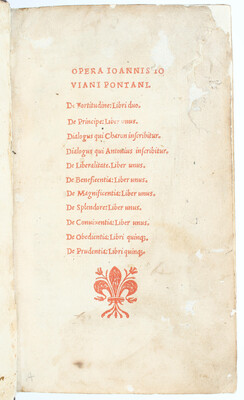 OPERA IOANNIS IO
VIANI PONTANI.
De Fortitudine: Libri duo.
De Principe: Liber unus.
Dialogus qui Charon inscribitur.
Dialogus qui Antonius inscribitur.
De Liberalitate. Liber unus.
De Beneficentia: Liber unus.
De Magnificentia: Liber unus.
De Splendore: Liber unus.
De Conviventia: Liber unus.
De Obedientia: Libri quinq;
De Prudentia: Libri quinq;